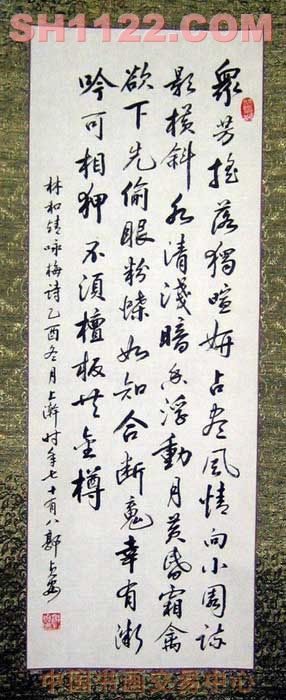 SH1122.COM
眾芳搖落獨喧妍占尽風情向小園疏
影橫斜水清淺暗香浮動月黃昏霜禽
欲下先偷眼粉蝶如知合断魂幸有微
吟可相狎不須檀板共金樽
林和靖咏梅詩乙酉冬月上澣时年七十有八
中国书画交易中心